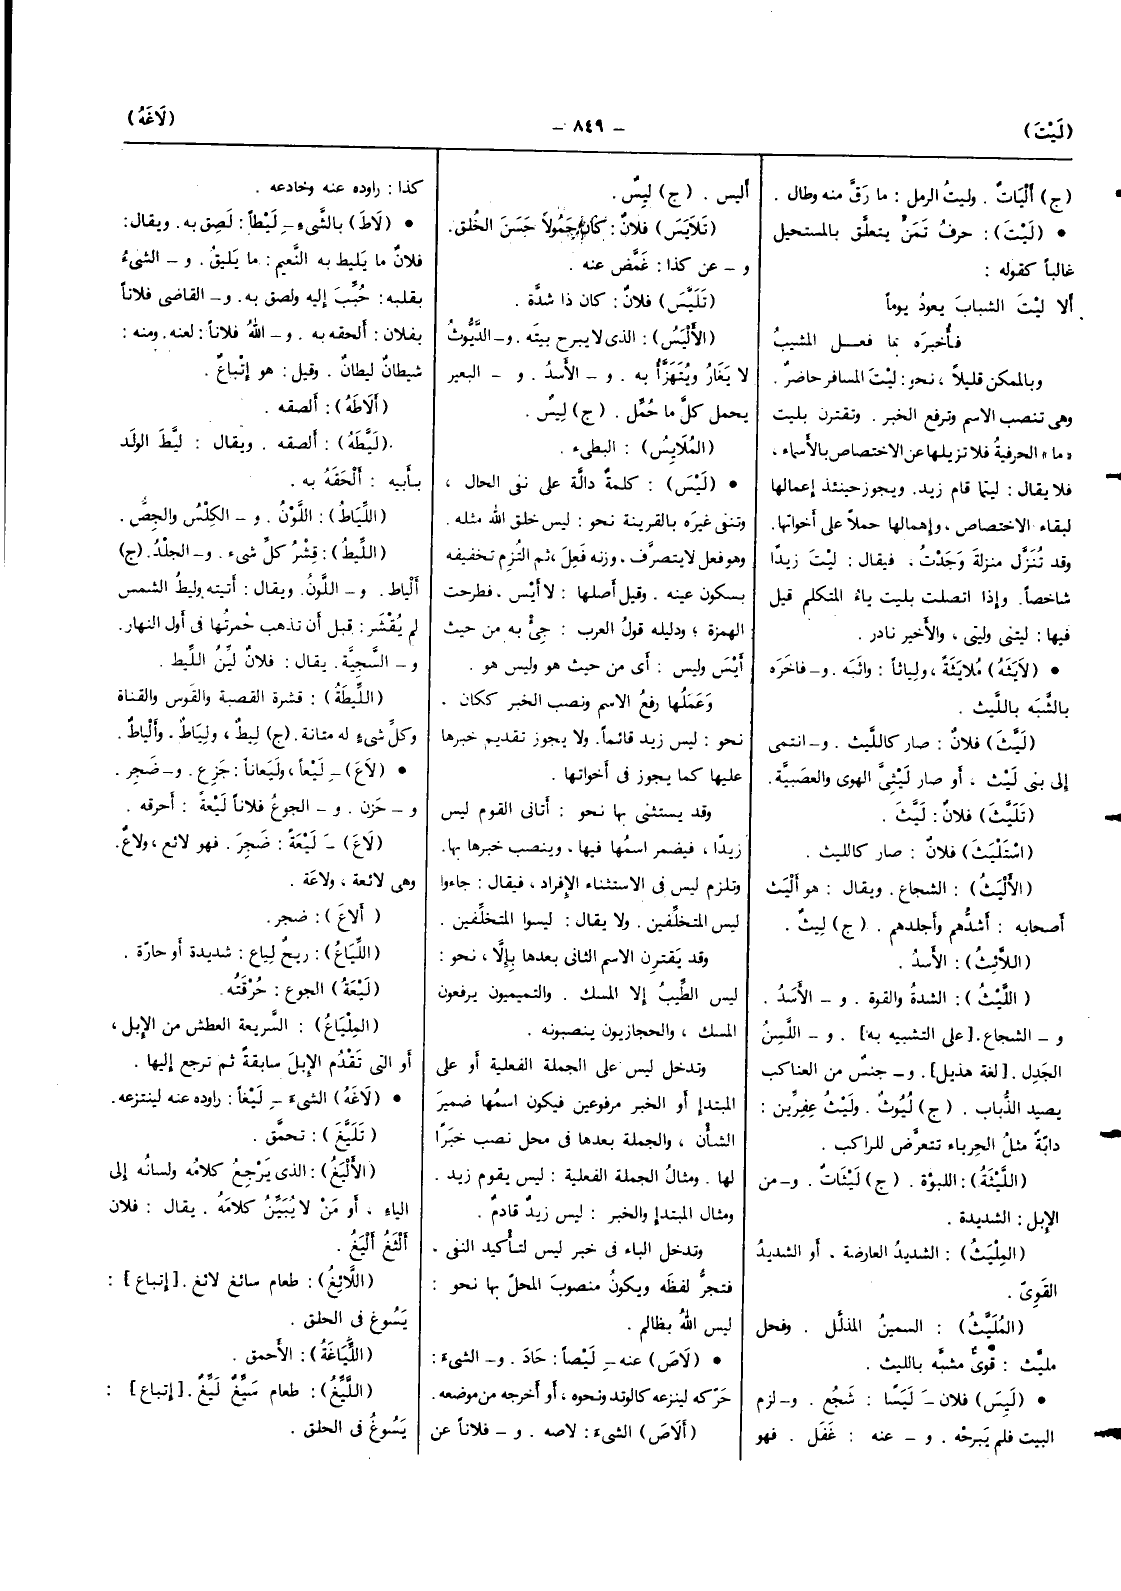 (لَيْتَ)
– ٨٤٩ –
(لَاغَهُ)
(ج) أَلْيَاتٌ . وليتُ الرمل : ما رَقَّ منه وطال .
• (لَيْتَ) : حرفُ تَمَنٍّ يتعلَّق بالمستحيل
غالباً كقوله :
ألا ليْتَ الشبابَ يعودُ يوماً
فأُخبرَه بما فعل المشيبُ
وبالممكن قليلاً ، نحو : ليْتَ المسافر حاضرٌ .
وهى تنصب الاسم وترفع الخبر . وتقترن بليت
« ما » الحرفيةُ فلا تزيلها عن الاختصاص بالأسماء ،
فلا يقال : ليتما قام زيد . ويجوز حينئذ إعمالها
لبقاء الاختصاص ، وإهمالها حملاً على أخواتها .
وقد تُنَزَّل منزلةَ وَجَدْتُ ، فيقال : ليْتَ زيدًا
شاخصاً . وإذا اتصلت بليت ياءُ المتكلم قيل
فيها : ليتنى وليتى ، والأخير نادر .
• (لَايَثَهُ) مُلايَثَةً ، ولِياثاً : واثَبَه . و– فاخَرَه
بالشَّبَه بالليث .
(لَيَّثَ) فلانٌ : صار كالليث . و– انتمى
إلى بنى لَيْث ، أو صار لَيْثِىَّ الهوى والعصَبيَّة .
(تَلَيَّثَ) فلانٌ : لَيَّثَ .
(اسْتَلْيَثَ) فلانٌ : صار كالليث .
(الأَلْيَثُ) : الشجاع . ويقال : هو أَلْيَث
أصحابه : أشدُّهم وأجلدهم . (ج) لِيثٌ .
(اللَّائِثُ) : الأسدُ .
(اللَّيْثُ) : الشدةُ والقوة . و – الأسَدُ .
و – الشجاع . [على التشبيه به] . و – اللَّسِنُ
الجَدِل . [لغة هذيل] . و – جنسٌ من العناكب
يصيد الذُّباب . (ج) لُيُوثٌ . ولَيْثُ عِفِرِّين :
دابَّةٌ مثلُ الحِرباء تتعرَّض للراكب .
(اللَّيْثَةُ) : اللبؤة . (ج) لَيْثَاتٌ . و– من
الإبل : الشديدة .
(المِلْيَثُ) : الشديدُ العارضة . أو الشديدُ
القَوِىّ .
(المُلَيَّثُ) : السمينُ المذلَّل . وفحل
مليَّث : قَوِىٌّ مشبَّه بالليث .
• (لَيِسَ) فلان –َ لَيَسًا : شَجُع . و– لزم
البيت فلم يَبرحْه . و – عنه : غَفَل . فهو
أليس . (ج) لِيسٌ .
(تَلَايَسَ) فلانٌ : كان حَمُولاً حَسَنَ الخُلق .
و – عن كذا : غَمَّض عنه .
(تَلَيَّسَ) فلانٌ : كان ذا شدَّة .
(الأَلْيَسُ) : الذى لا يبرح بيتَه . و– الدَّيُّوثُ
لا يَغَارُ ويُتَهَزَّأُ به . و – الأسدُ . و – البعير
يحمل كلَّ ما حُمِّل . (ج) لِيسٌ .
(المُلَايِسُ) : البطىء .
• (لَيْسَ) : كلمةٌ دالَّة على نفى الحال ،
وتنفى غيرَه بالقرينة نحو : ليس خلق الله مثله .
وهو فعل لا يتصرَّف ، وزنه فَعِلَ ، ثم التُزِم تخفيفه
بسكون عينه . وقيل أصلها : لا أَيْس . فطرحت
الهمزة ؛ ودليله قولُ العرب : جِىْ به من حيث
أَيْسَ وليس : أى من حيث هو وليس هو .
وَعَمَلُها رفعُ الاسم ونصب الخبر ككان .
نحو : ليس زيد قائماً . ولا يجوز تقديم خبرها
عليها كما يجوز فى أخواتها .
وقد يستثنى بها نحو : أتانى القوم ليس
زيدًا ، فيضمر اسمُها فيها ، وينصب خبرها بها .
وتلزم ليس فى الاستثناء الإفراد ، فيقال : جاءوا
ليس المتخلِّفين . ولا يقال : ليسوا المتخلِّفين .
وقد يَقترن الاسم الثانى بعدها بِإلَّا ، نحو :
ليس الطِّيبُ إلا المسك . والتميميون يرفعون
المسك ، والحجازيون ينصبونه .
وتدخل ليس على الجملة الفعلية أو على
المبتدإ أو الخبر مرفوعين فيكون اسمُها ضميرَ
الشأن ، والجملة بعدها فى محل نصب خبَرًا
لها . ومثالُ الجملة الفعلية : ليس يقوم زيد .
ومثال المبتدإ والخبر : ليس زيدٌ قادمٌ .
وتدخل الباء فى خبر ليس لتأكيد النفى .
فتجرُّ لفظَه ويكونُ منصوبَ المحلّ بها نحو :
ليس اللهُ بظالم .
• (لَاصَ) عنه –ِ لَيْصاً : حَادَ . و– الشىءَ :
حَرَّكه لينزعه كالوتد ونحوه ، أو أخرجه من موضعه .
(أَلَاصَ) الشىءَ : لاصه . و – فلاناً عن
كذا : راوده عنه وخادعه .
• (لَاطَ) بالشَّىءِ –ِ لَيْطاً : لَصِق به . ويقال :
فلانٌ ما يَليط به النَّعيم : ما يَليقُ . و – الشىءُ
بقلبه : حُبِّبَ إليه ولصق به . و– القاضى فلاناً
بفلان : ألحقه به . و– اللهُ فلاناً : لعنه . ومنه :
شيطانٌ ليطانٌ . وقيل : هو إتْباعٌ .
(أَلَاطَهُ) : ألصقه .
(لَيَّطَهُ) : ألصقه . ويقال : ليَّطَ الولَد
بأبيه : أَلْحَقَهُ به .
(اللِّيَاطُ) : اللَّوْنُ . و – الكِلْسُ والجِصُّ .
(اللِّيطُ) : قِشْرُ كلِّ شىء . و– الجِلْدُ . (ج)
أَلْياط . و – اللَّونُ . ويقال : أتيته وليطُ الشمس
لم يُقْشَر : قبل أن تذهب حُمرتُها فى أول النهار .
و – السَّجيَّة . يقال : فلانٌ ليِّنُ اللِّيط .
(اللِّيطَةُ) : قشرة القصبة والقَوس والقناة
وكلِّ شىءٍ له متانة . (ج) لِيطٌ ، ولِيَاطٌ ، وأَلْيَاطٌ .
• (لَاعَ) –ِ لَيْعاً ، ولَيَعاناً : جَزِع . و– ضَجِر .
و – حَزِن . و – الجوعُ فلاناً لَيْعَةً : أحرقه .
(لَاعَ) –َ لَيْعَةً : ضَجِرَ . فهو لائع ، ولاعٌ .
وهى لائعة ، ولاعَة .
(أَلَاعَ) : ضجر .
(اللِّيَاعُ) : ريحٌ لِياع : شديدة أو حارّة .
(لَيْعَةُ) الجوع : حُرْقَتُه .
(المِلْيَاعُ) : السَّريعة العطش من الإبل ،
أو التى تَقْدُم الإبلَ سابقةً ثم ترجع إليها .
• (لَاغَهُ) الشىءَ –ِ لَيْغاً : راوده عنه لينتزعه .
(تَلَيَّغَ) : تحمَّق .
(الأَلْيَغُ) : الذى يَرْجِعُ كلامُه ولسانُه إلى
الياء ، أو مَنْ لا يُبَيِّنُ كلامَهُ . يقال : فلان
أَلْثَغُ أَلْيَغُ .
(اللَّائِغُ) : طعام سائغ لائغ . [إتباع] :
يَسُوغ فى الحلق .
(اللَّيَّاغَةُ) : الأحمق .
(اللَّيِّغُ) : طعام سَيِّغٌ لَيِّغٌ . [إتباع] :
يَسُوغُ فى الحلق .